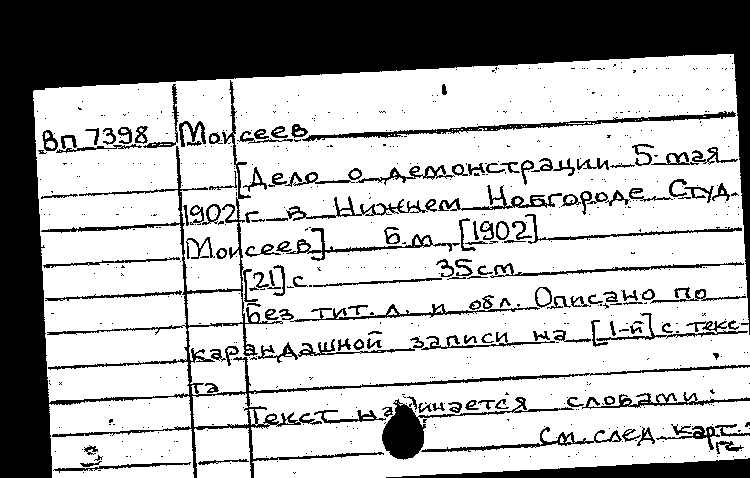 Вп 7398 Моисеев
[Дело о демонстрации 5 мая
1902 г в Нижнем Новгороде Студ.
Моисеев]. Б.м., [1902]
[21] с 35 см.
Без тит. л. и обл. Описано по
карандашной записи на [1-й] с. текс-
та
Текст начинается словами:
См. след. карт.